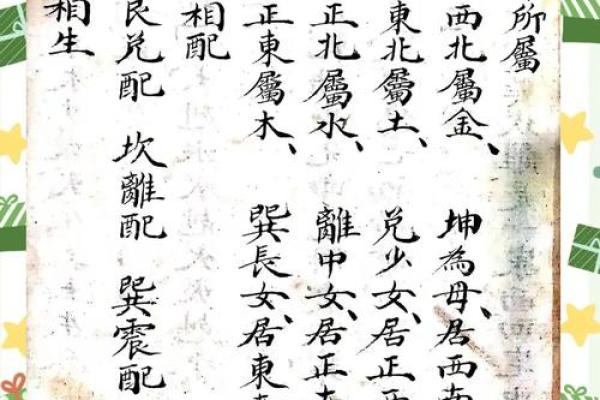 所屬
西北屬金、 坤為母、居西南
東北屬土、 兌少女、居正西
正北屬水、 離中女、居正
正東屬木、 巽長女、居東
相配
艮兌配 坎離配 巽震配
相生